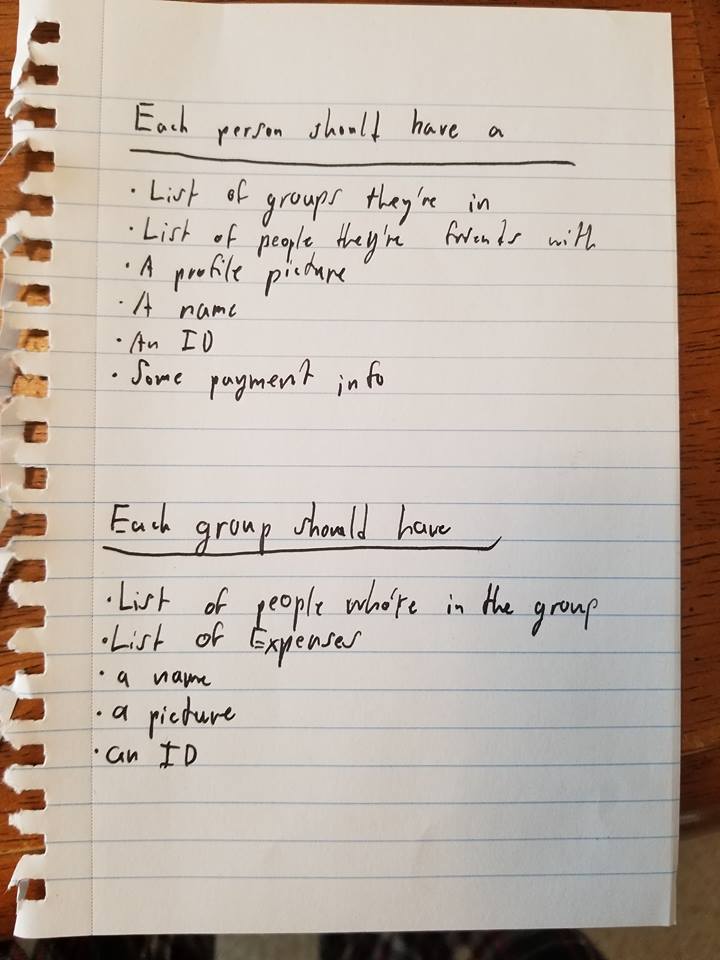 Each person should have a
· List of groups they're in
· List of people they're friends with
· A profile picture
· A name
· An ID
· Some payment info
Each group should have
· List of people who're in the group
· List of Expenses
· a name
· a picture
· an ID